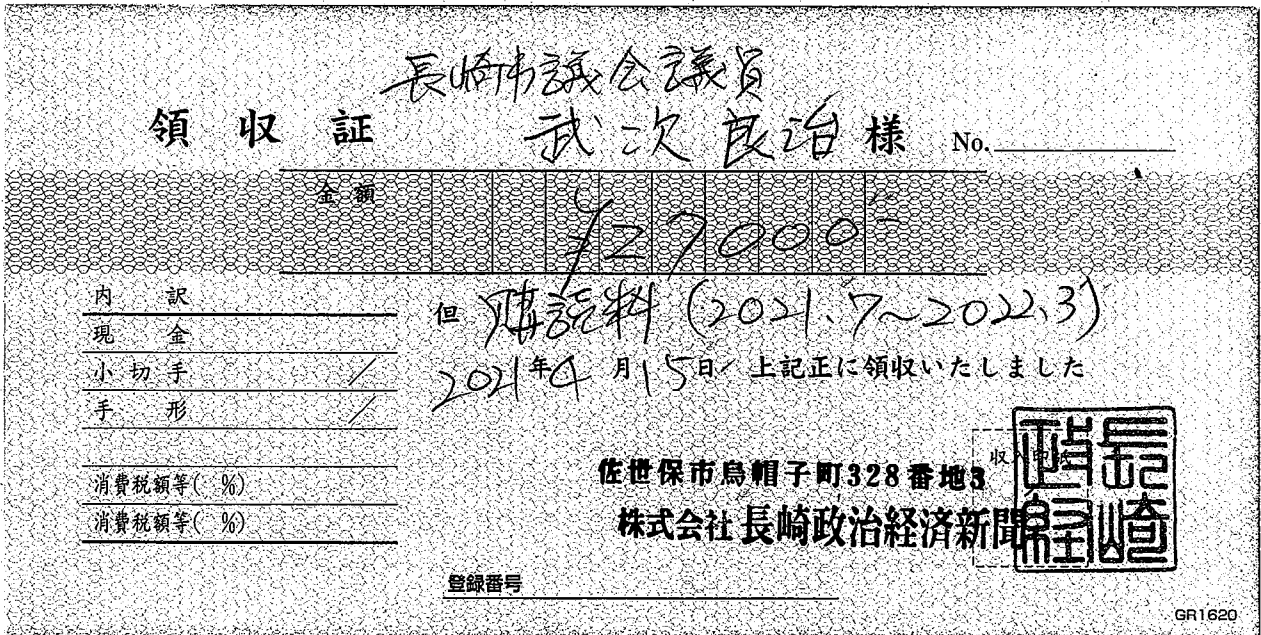 長崎市議会議員
領収証 武次良治 様 No.
金額 ¥27000-
内訳
現金
小切手 /
手形 /
消費税額等( %)
消費税額等( %)
但 購読料(2021.7~2022.3)
2021年4月15日 上記正に領収いたしました
収入印紙
佐世保市烏帽子町328番地3
株式会社 長崎政治経済新聞
長崎政経
登録番号
GR1620